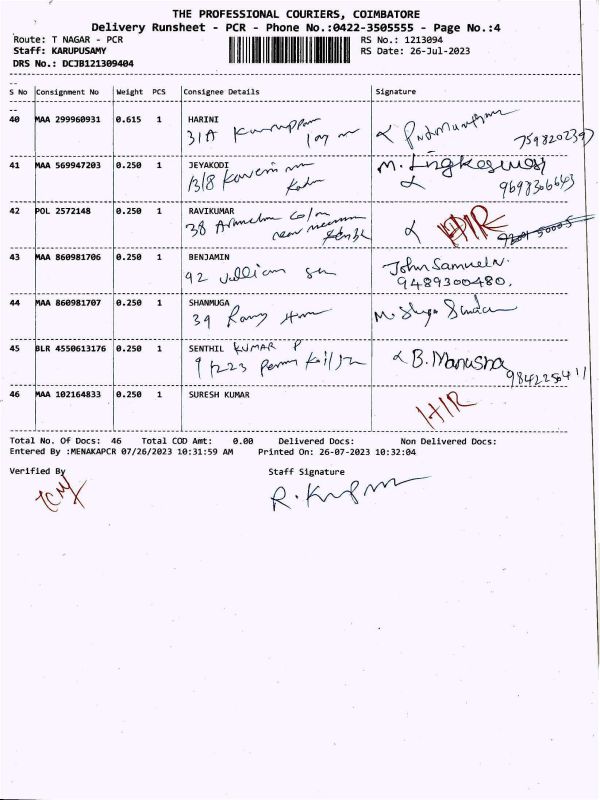 THE PROFESSIONAL COURIERS, COIMBATORE
Delivery Runsheet - PCR - Phone No.:0422-3505555 - Page No.:4
Route: T NAGAR - PCR RS No.: 1213094
Staff: KARUPUSAMY RS Date: 26-Jul-2023
DRS No.: DCJB121309404
S No Consignment No Weight PCS Consignee Details Signature
40 MAA 299960931 0.615 1 HARINI
31A
7598202397
41 MAA 569947203 0.250 1 JEYAKODI
M. Lingkeswary
9698366643
42 POL 2572148 0.250 1 RAVIKUMAR
38
HIR
43 MAA 860981706 0.250 1 BENJAMIN John Samuel N.
92 9489300480.
44 MAA 860981707 0.250 1 SHANMUGA
39
45 BLR 4550613176 0.250 1 SENTHIL KUMAR P
B. Manusha
46 MAA 102164833 0.250 1 SURESH KUMAR
HIR
Total No. Of Docs: 46 Total COD Amt: 0.00 Delivered Docs: Non Delivered Docs:
Entered By :MENAKAPCR 07/26/2023 10:31:59 AM Printed On: 26-07-2023 10:32:04
Verified By Staff Signature